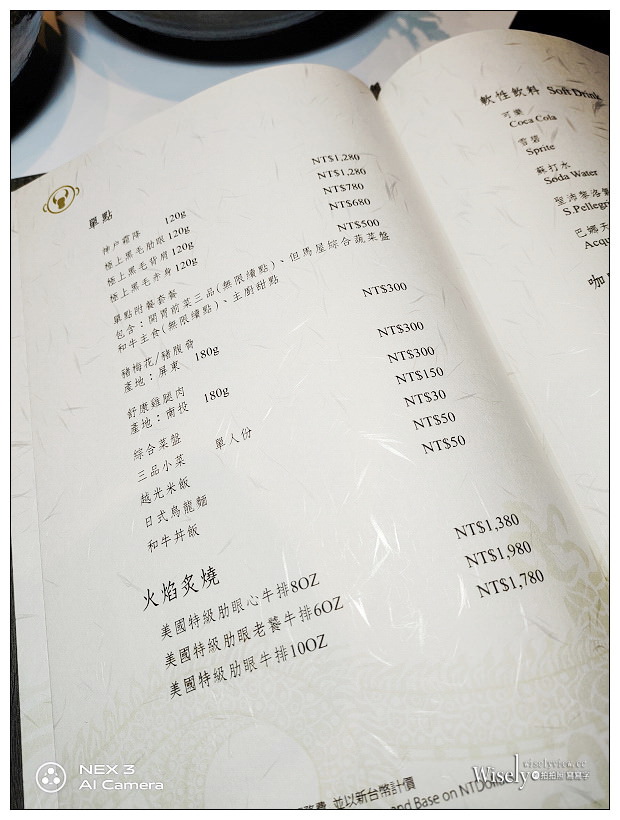 單點
神戶霜降 120g NT$1,280
極上黑毛肋眼 120g NT$1,280
極上黑毛背肩 120g NT$780
極上黑毛赤身 120g NT$680
單點附餐套餐 NT$500
包含：開胃前菜三品(無限續點)、但馬屋綜合蔬菜盤
和牛主食(無限續點)、主廚甜點
豬梅花/豬腹脅 180g NT$300
產地：屏東
舒康雞腿肉 180g NT$300
產地：南投
綜合菜盤 NT$300
三品小菜 單人份 NT$150
越光米飯 NT$30
日式烏龍麵 NT$50
和牛丼飯 NT$50
火焰炙燒
美國特級肋眼心牛排8OZ NT$1,380
美國特級肋眼老饕牛排6OZ NT$1,980
美國特級肋眼牛排10OZ NT$1,780
軟性飲料 Soft Drink
可樂
Coca Cola
雪碧
Sprite
蘇打水
Soda Water
S.Pellegri
Acqu
咖
並以新台幣計價
and Base on NTDolla
NEX 3
AI Camera
wiselyview.cc
Wisely
拍拍照寫寫字